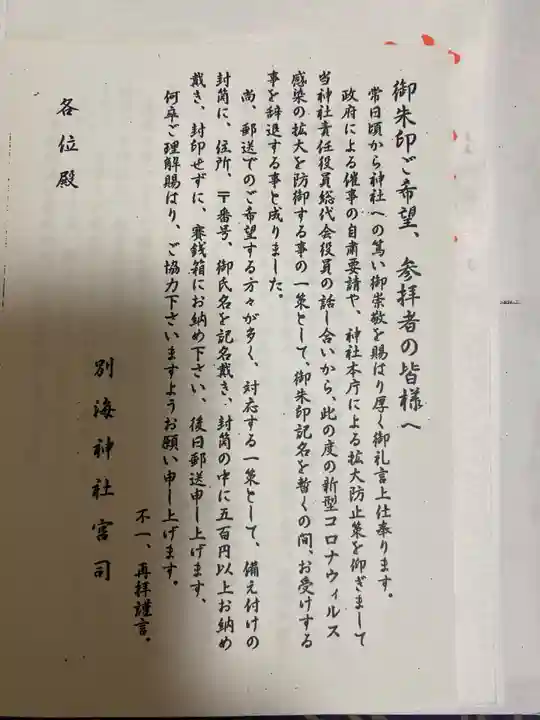 御朱印ご希望、参拝者の皆様へ
常日頃から神社への篤い御崇敬を賜はり厚く御礼言上仕奉ります。
政府による催事の自粛要請や、神社本庁による拡大防止策を仰ぎまして
当神社責任役員総代会役員の話し合いから、此の度の新型コロナウィルス
感染の拡大を防御する事の一策として、御朱印記名を暫くの間、お受けする
事を辞退する事と成りました。
尚、郵送でのご希望する方々が多く、対応する一策として、備え付けの
封筒に、住所、〒番号、御氏名を記名戴き、封筒の中に五百円以上お納め
戴き、封印せずに、賽銭箱にお納め下さい、後日郵送申し上げます、
何卒ご理解賜はり、ご協力下さいますようお願い申し上げます。
不一、再拝謹言。
別海神社宮司
各位殿